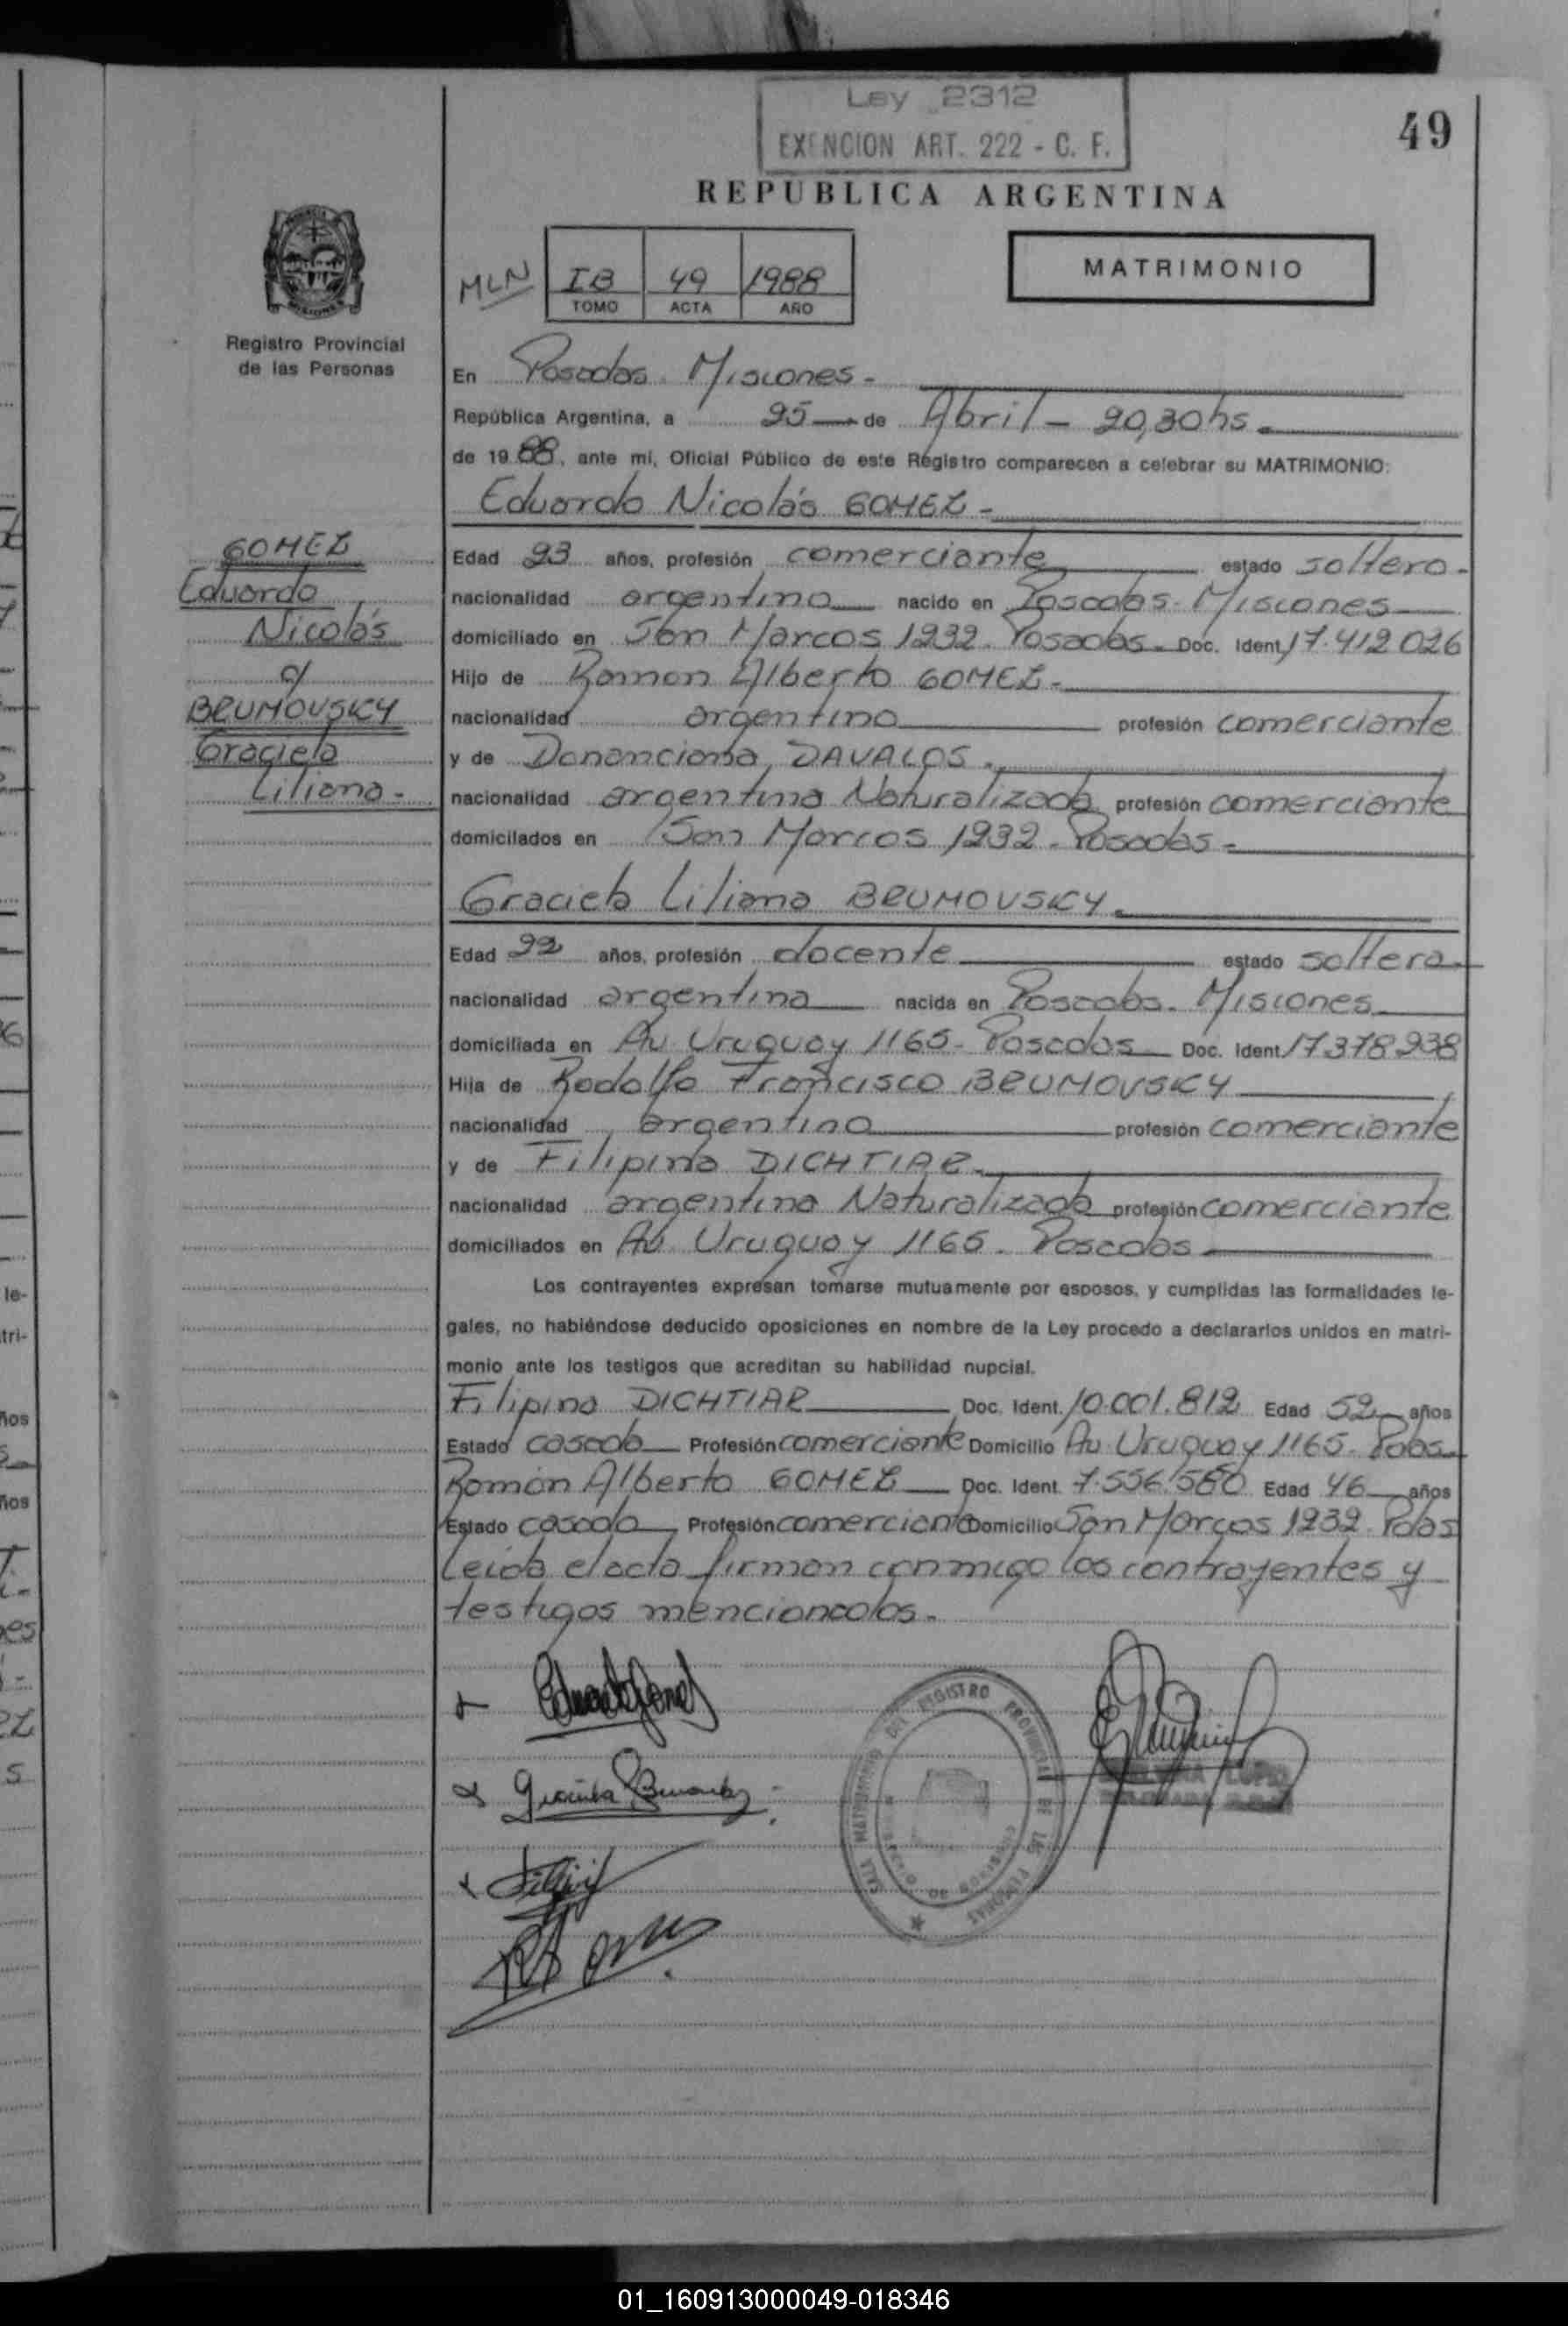 Ley 2312
EXENCION ART. 222 - C. F.
49
REPUBLICA ARGENTINA
MLN
IB 49 1988
TOMO ACTA AÑO
MATRIMONIO
Registro Provincial
de las Personas
En Posadas. Misiones.-
República Argentina, a 25 de Abril - 20,30 hs.
de 1988, ante mí, Oficial Público de este Registro comparecen a celebrar su MATRIMONIO:
Eduardo Nicolás GOMEZ.-
GOMEZ
Eduardo
Nicolás
c/
BRUMOVSKY
Graciela
Liliana.-
Edad 23 años, profesión comerciante estado soltero.
nacionalidad argentino nacido en Posadas. Misiones
domiciliado en San Marcos 1232. Posadas. Doc. Ident. 17.412026
Hijo de Ramon Alberto GOMEZ.-
nacionalidad argentino profesión comerciante
y de DAVALOS.
nacionalidad argentina Naturalizada profesión comerciante
domicilados en San Marcos 1232. Posadas.-
Graciela Liliana BRUMOVSKY.
Edad 22 años, profesión docente estado soltera.
nacionalidad argentina nacida en Posadas. Misiones
domiciliada en Av. Uruguay 1165. Posadas Doc. Ident. 17378938
Hija de Rodolfo Francisco BRUMOVSKY
nacionalidad argentino profesión comerciante
y de Filipina DICHTIAR.
nacionalidad argentina Naturalizada profesión comerciante
domiciliados en Av. Uruguay 1165. Posadas
Los contrayentes expresan tomarse mutuamente por esposos, y cumplidas las formalidades le-
gales, no habiéndose deducido oposiciones en nombre de la Ley procedo a declararlos unidos en matri-
monio ante los testigos que acreditan su habilidad nupcial.
Filipina DICHTIAR Doc. Ident. 10.001.812 Edad 52 años
Estado casada Profesión comerciante Domicilio Av. Uruguay 1165. Pdas.
Ramón Alberto GOMEZ Doc. Ident. 7.556.580 Edad 46 años
Estado casado Profesión comerciante Domicilio San Marcos 1232. Pdas
Leida el acta firman conmigo los contrayentes y
testigos mencionados.
SALA MATRIMONIO DEL REGISTRO PROVINCIAL DE LAS PERSONAS
01_160913000049-018346